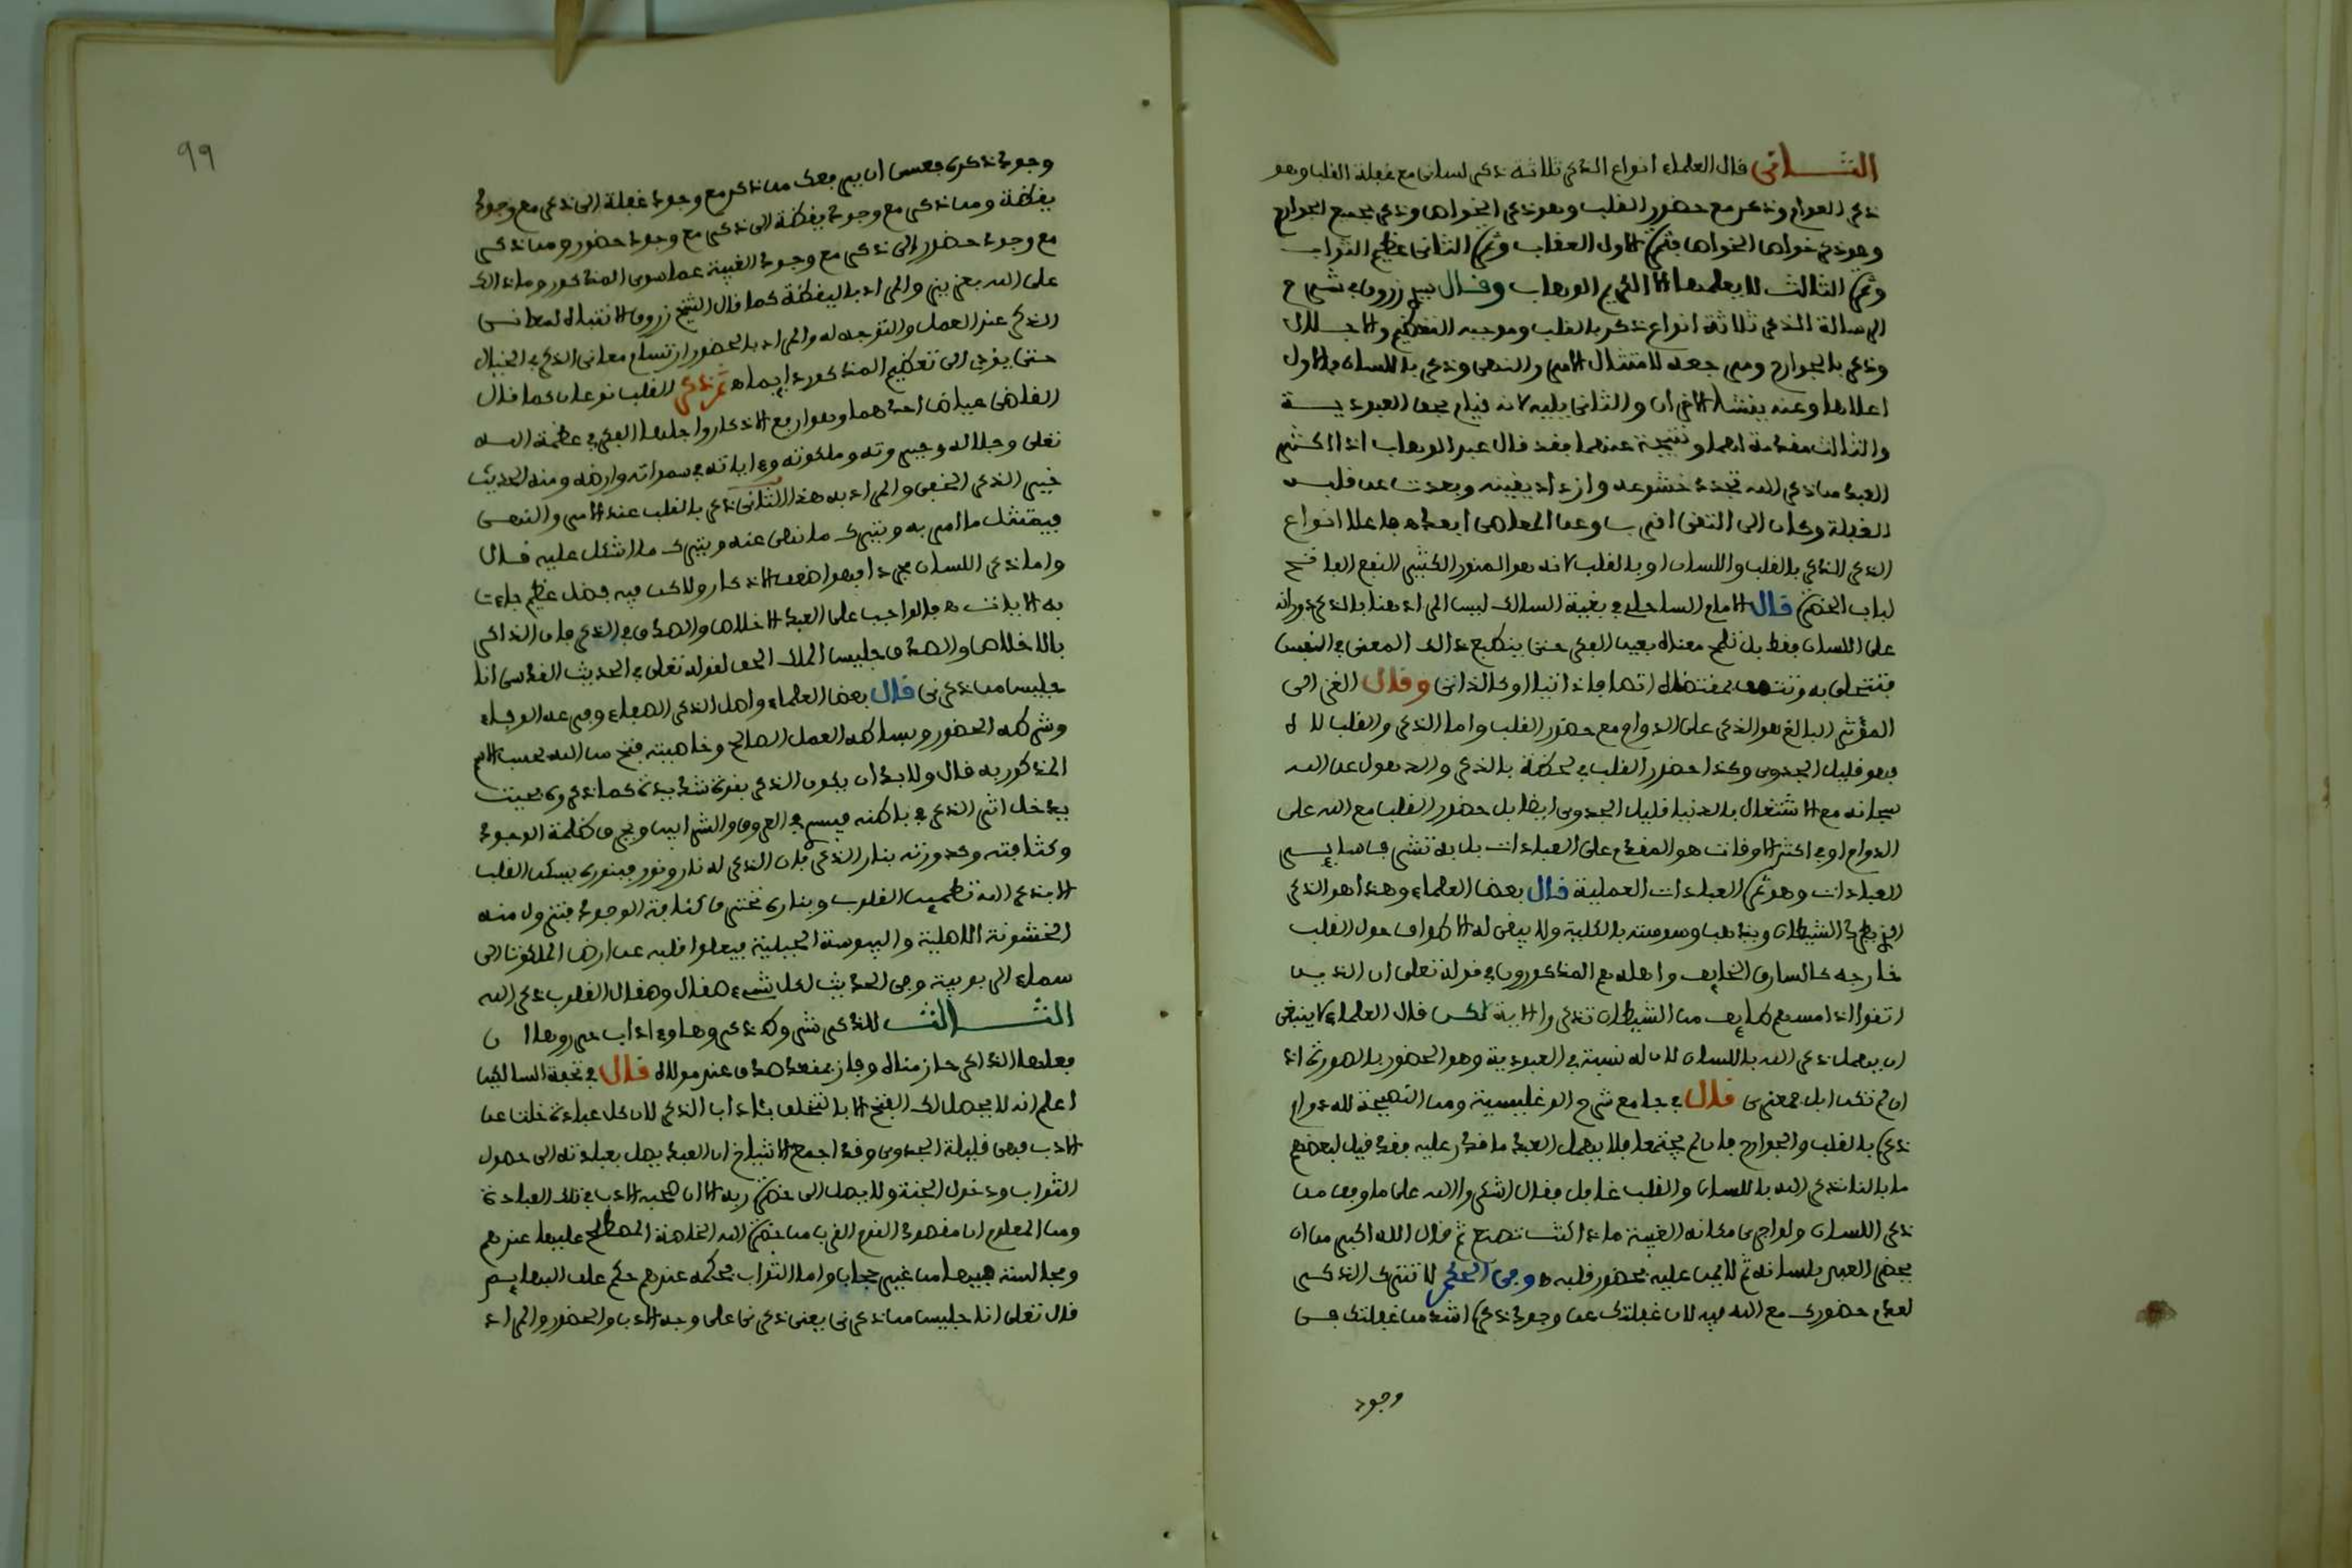 الثاني قال العلماء انواع الذكر ثلاثة ذكر لساني مع غفلة القلب وهو
ذكر العوام وذكر مع حضور القلب وهو ذكر الخواص وذكر بجميع الجوارح
وهو ذكر خواص الخواص فثمرة الاول العقاب وثمرة الثاني عظيم الثواب
وثمرة الثالث لا يعلمها الا الكريم الوهاب وقال زروق في شرح
الرسالة الذكر ثلاثة انواع ذكر بالقلب وموجبه التعظيم والاجلال
وذكر بالجوارح ومن جعله لامتثال الامر والنهي وذكر باللسان فالاول
اعلاها وعنه ينشا الاخران والثاني يليه لانه قيام بحق العبودية
والثالث مقدمة لهما ونتيجة عنهما فقد قال عبد الوهاب اذا اكثر
العبد من ذكر الله تجدد خشوعه وازداد يقينه وبعدت عن قلبه
الغفلة وكان الى التقى اقرب وعن المعاصي ابعد فاعلا انواع
الذكر الذكر بالقلب واللسان او بالقلب لانه هو المنور الكثير النفع الفاتح
لباب الحضرة قال الامام الساحلي في بغية السالك ليس المراد هنا بالذكر دورانه
على اللسان فقط بل تلمح معناه بعين الفكر حتى ينطبع ذالك المعنى في النفس
فتتحلى به وتتصف بمقتضاه اتصافا ذاتيا او كالذاتي وقال الغزالي
المؤثر البالغ هو الذكر على الدوام مع حضور القلب واما الذكر والقلب لاه
فهو قليل الجدوى وكذا حضور القلب في لحظة بالذكر والذهول عن الله
سبحانه مع الاشتغال بالدنيا قليل الجدوى ايضا بل حضور القلب مع الله على
الدوام او في اكثر الاوقات هو المقدم على العبادات بل به تشرف سائر
العبادات وهو ثمرة العبادات العملية قال بعض العلماء وهذا هو الذكر
الذي يطرد الشيطان ويذهب وسوسته بالكلية ولا يبقى له الا طواف حول القلب
خارجه كالسارق الخايف واهله هم المذكورون في قوله تعلى ان الذين
اتقوا اذا مسهم طايف من الشيطان تذكروا الاية لكن قال العلماء لا ينبغي
ان يهمل ذكر الله باللسان لان له نسبة في العبودية وهو الحضور بالصورة اذ
ان لم تكن ابل فمعزى قال في جامع شرح الوغليسية ومن النصيحة لله دوام
ذكره بالقلب والجوارح فان لم يجتمعا فلا يهمل العبد ما قدر عليه فقد قيل لبعضهم
ما بالنا نذكر الله باللسان والقلب غافل فقال اشكروا الله على ما وفق من
ذكر اللسان ولو اجرى مكانه الغيبة ماذا كنت تصنع ثم قال الله اكبر من ان
يحضر العبد بلسانه ثم لا يمن عليه بحضور قلبه وفي الحكم لا تترك الذكر
لعدم حضورك مع الله فيه لان غفلتك عن وجود ذكره اشد من غفلتك في
وجود
99
وجود ذكره فعسى ان يرفعك من ذكر مع وجود غفلة الى ذكر مع وجود
يقظة ومن ذكر مع وجود يقظة الى ذكر مع وجود حضور ومن ذكر
مع وجود حضور الى ذكر مع وجود الغيبة عما سوى المذكور وما ذالك
على الله بعزيز والمراد باليقظة كما قال الشيخ زروق الانتباه لمعاني
الذكر عند العمل والتوجه له والمراد بالحضور ارتسام معاني الذكر في الخيال
حتى يفرج الى تعظيم المذكور ثم ذكر القلب نوعان كما قال
القاضي عياض احدهما وهو ارفع الاذكار واجلها الفكر في عظمة الله
تعلى وجلاله وجبروته وملكوته واياته في سمواته وارضه ومنه الحديث
خير الذكر الخفي والمراد به هذا الثاني ذكر بالقلب عند الامر والنهي
فيمتثل ما امر به ويترك ما نهي عنه ويترك ما اشكل عليه قال
واما ذكر اللسان مجردا فهو اضعف الاذكار ولاكن فيه فضل عظيم جاءت
به الاثار فالواجب على العبد الاخلاص والصدق في الذكر فان الذاكر
بالاخلاص والصدق جليس الملك الحق لقوله تعلى في الحديث القدسي انا
جليس من ذكرني قال بعض العلماء واصل الذكر الصفاء وفرعه الوفاء
وشرطه الحضور وبساطه العمل الصالح وخاصيته فتح من الله بحسب الاسم
المذكور به قال ولا بد ان يكون الذكر بقوة شديدة كما ذكروه بحيث
يدخل اثر الذكر في باطنه فيسري في العروق والشرايين ويحرق ظلمة الوجود
وكثافته وكدورته بنار الذكر فان الذكر له نار ونور فبنوره يسكن القلب
الا بذكر الله تطمئن القلوب وبناره تحترق كثافة الوجود فتزول منه
الخشونة الاصلية واليبوسة الجبلية فيعلوا قلبه عن ارض الملكوت الى
سماء الربوبية وفي الحديث لكل شيء صقال وصقال القلوب ذكر الله
الثالث للذكر شروط ذكروها وءاداب حرروها ان
فعلها الذاكر حاز مناه وفاز بمقعد صدق عند مولاه قال في تحفة السالكين
اعلم انه لا يحصل لك الفتح الا بالتخلق بئاداب الذكر لان كل عبادة خلت عن
الادب فهي قليلة الجدوى وقد اجمع الاشياخ ان العبد يصل بعبادته الى حصول
الثواب ودخول الجنة ولا يصل الى حضرة ربه الا ان صحبه الادب في تلك العبادة
ومن المعلوم ان مقصود القوم القرب من حضرة الله الخاصة المصطلح عليها عندهم
ومجالسته فيها من غير حجاب واما الثواب فحكمه عندهم حكم علف البهايم
قال تعلى انا جليس من ذكرني يعني ذكرني على وجه الادب والحضور والمراد